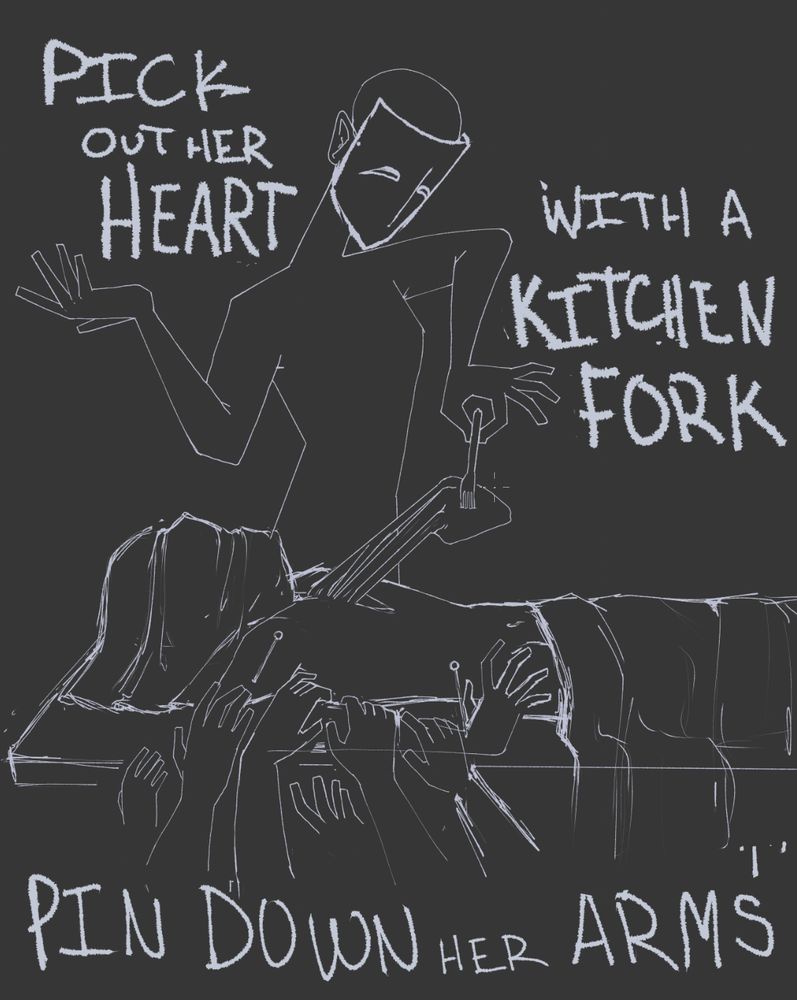 PICK
OUT HER
HEART
WITH A
KITCHEN
FORK
PIN DOWN HER ARMS